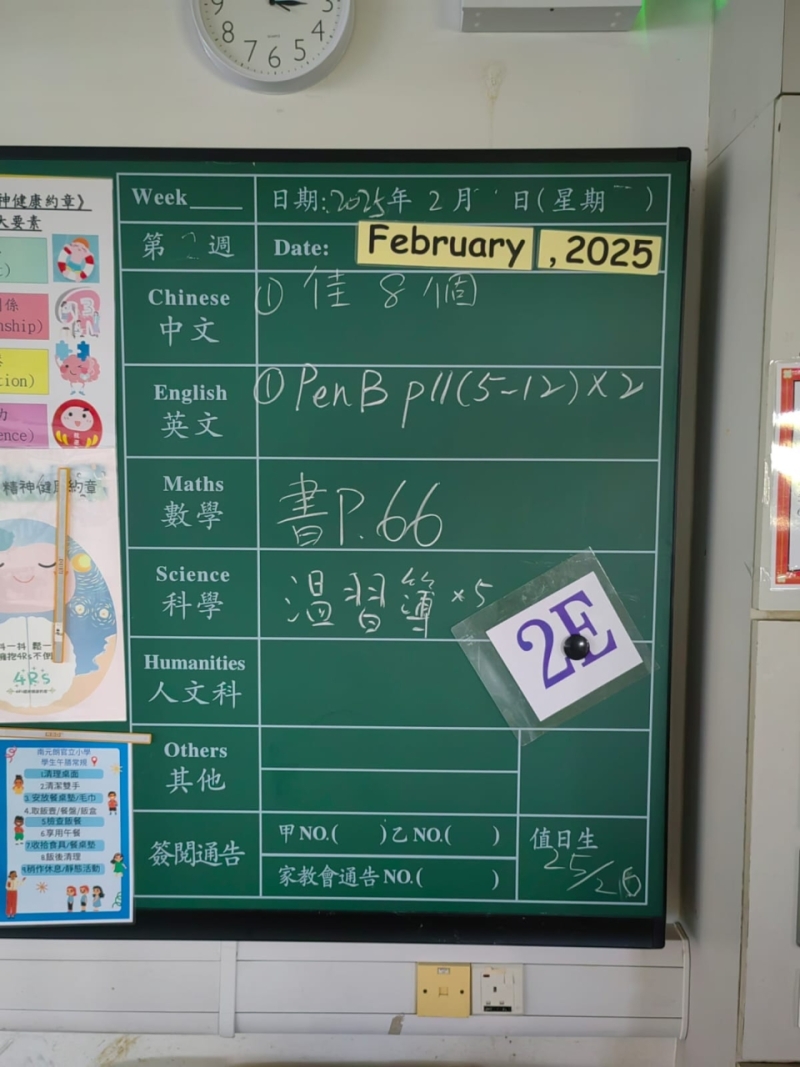 8
7
6
5
4
3
神健康約章》
大要素
係
nship)
tion)
力
ence)
精神健康約章
4Rs
南元朗官立小學
學生午膳常規
1.清理桌面
2.清潔雙手
3.安放餐桌墊/毛巾
4.取飯壺/餐盤/飯盒
5.檢查飯餐
6.享用午餐
7.收拾食具/餐桌墊
8.飯後清理
9.稍作休息/靜態活動
Week____ 日期:2025年 2月 日(星期 )
第 2 週 Date: February , 2025
Chinese
中文
① 佳 8 個
English
英文
① PenB p11(5-12)×2
Maths
數學
書P.66
Science
科學
溫習簿 ×5
2E
Humanities
人文科
Others
其他
簽閱通告
甲NO.( )乙NO.( )
家教會通告NO.( )
值日生
25/26